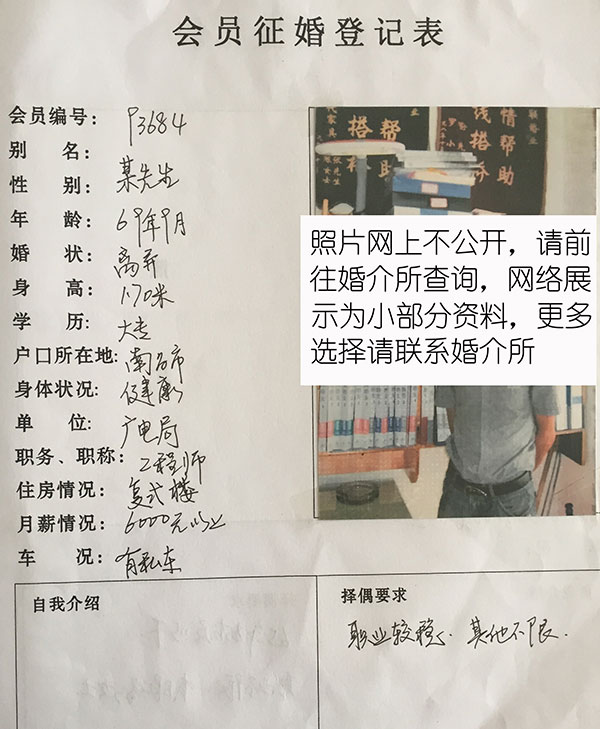 会员征婚登记表
会员编号: P3684
别 名: 某先生
性 别:
年 龄: 69年9月
婚 状: 离异
身 高: 1.70米
学 历: 大专
户口所在地: 南宁市
身体状况: 健康
单 位: 广电局
职务、职称: 工程师
住房情况: 复式楼
月薪情况: 6000元以上
车 况: 有私车
照片网上不公开，请前
往婚介所查询，网络展
示为小部分资料，更多
选择请联系婚介所
搭帮
情帮助
线搭
自我介绍
择偶要求
职业较稳、其他不限.